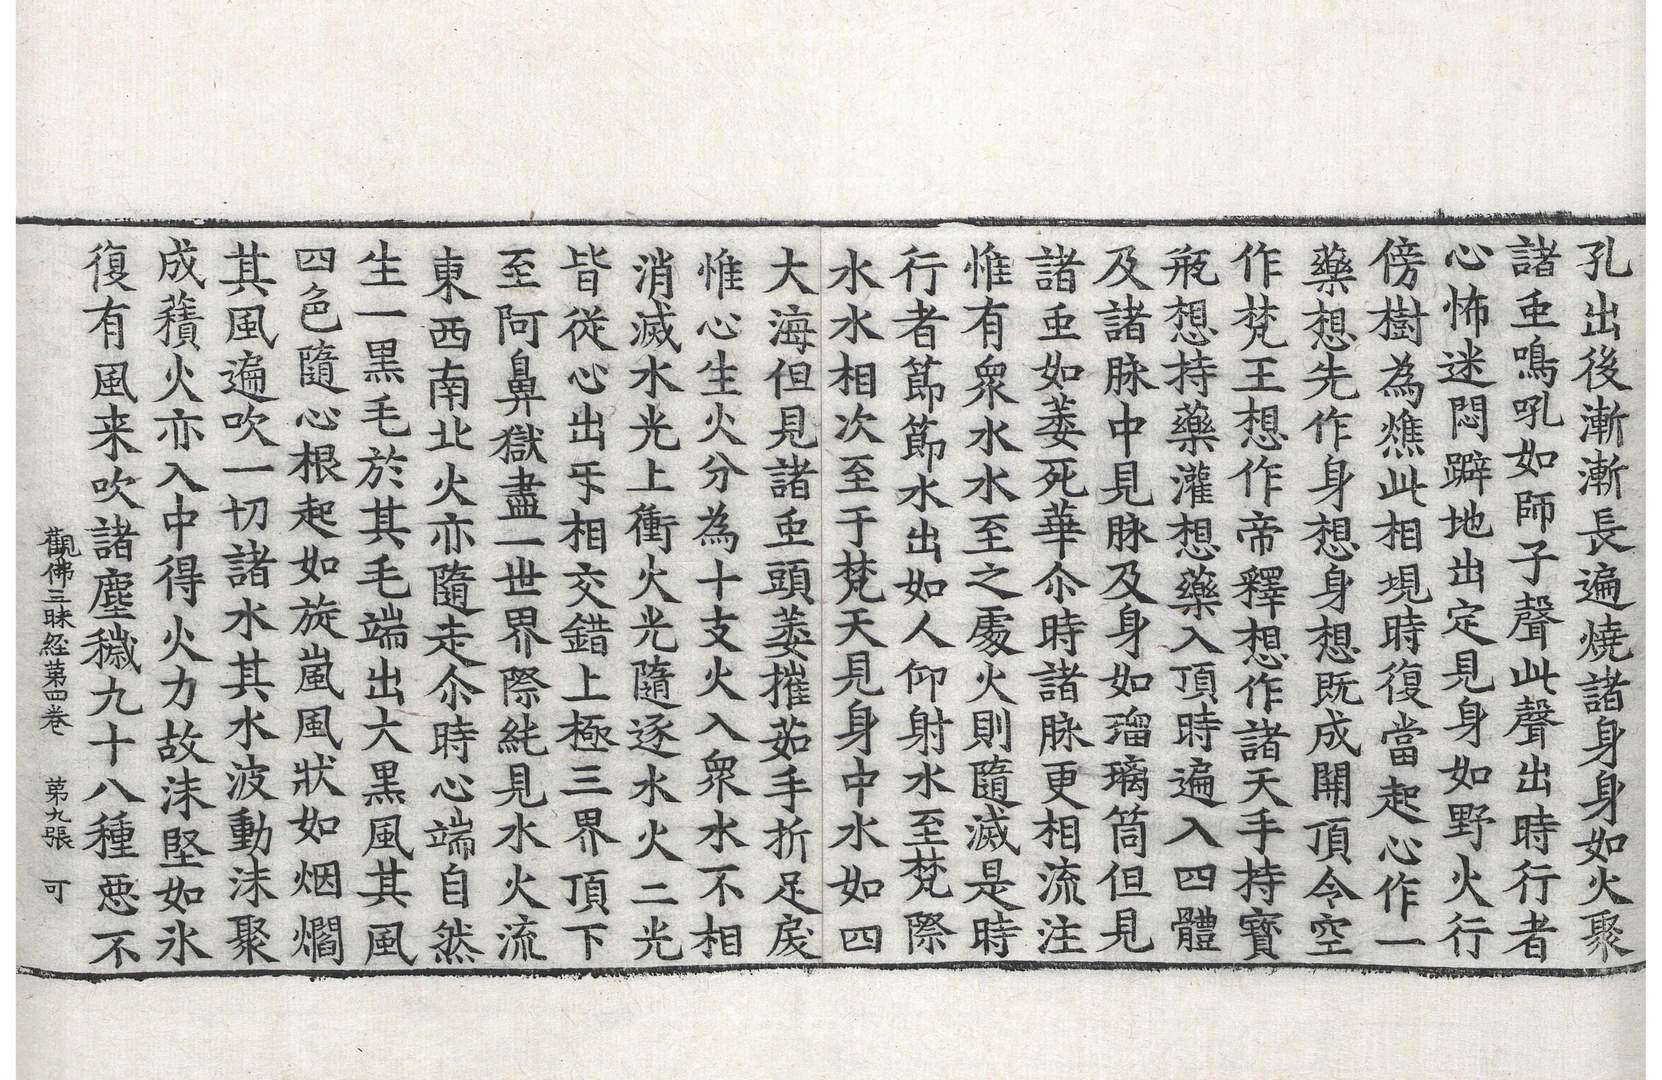 孔出後漸漸長遍燒諸身身如火聚
諸䖝鳴吼如師子聲此聲出時行者
心怖迷悶躃地出定見身如野火行
傍樹為燋此相現時復當起心作一
藥想先作身想身想既成開頂令空
作梵王想作帝釋想作諸天手持寶
瓶想持藥灌想藥入頂時遍入四體
及諸脉中見脉及身如瑠璃筒但見
諸䖝如萎死華尒時諸脉更相流注
惟有衆水水至之處火則隨滅是時
行者節節水出如人仰射水至梵際
水水相次至于梵天見身中水如四
大海但見諸䖝頭萎摧茹手折足戾
惟心生火分為十支火入衆水不相
消滅水光上衝火光隨逐水火二光
皆從心出㸦相交錯上極三界頂下
至阿鼻獄盡一世界際純見水火流
東西南北火亦隨走尒時心端自然
生一黑毛於其毛端出大黑風其風
四色隨心根起如旋嵐風狀如烟爓
其風遍吹一切諸水其水波動沫聚
成積火亦入中得火力故沫堅如氷
復有風来吹諸塵穢九十八種惡不
觀佛三昧経苐四卷 苐九張 可